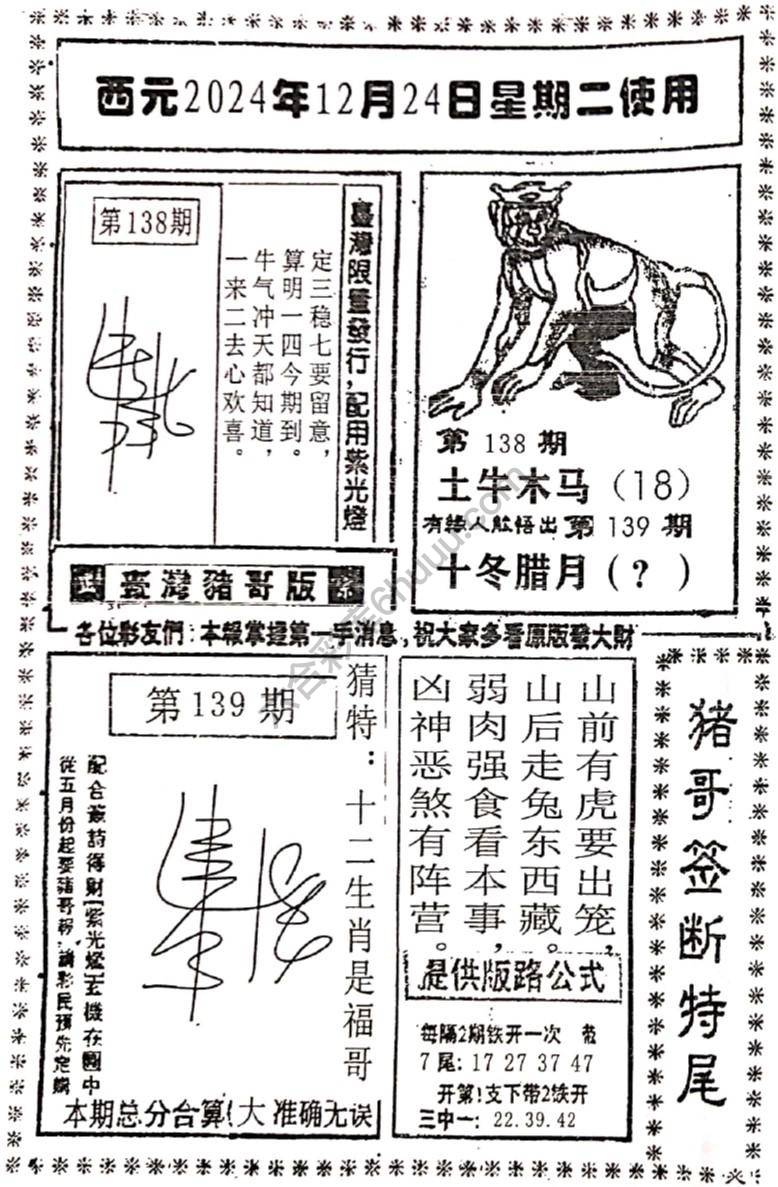 西元2024年12月24日星期二使用
第138期
臺灣限量發行，配用紫光燈
定三稳七要留意，
算明一四今期到。
牛气冲天都知道，
一来二去心欢喜。
臺灣豬哥版
第 138 期
土牛木马（18）
有緣人能悟出 第 139 期
十冬腊月（？）
各位彩友們：本報掌握第一手消息，祝大家多看原版發大財
第 139 期
猜特：十二生肖是福哥
配合簽詩得財（紫光燈）玄機在圖中
從五月份起要豬哥報，請彩民預先定購
本期总分合算（大 准确无误
山前有虎要出笼，
山后走兔东西藏。
弱肉强食看本事，
凶神恶煞有阵营。
提供版路公式
每隔2期铁开一次 带
7 尾：17 27 37 47
开第1支下带2铁开
三中一：22.39.42
猪哥签断特尾
六合彩库6huuu.com